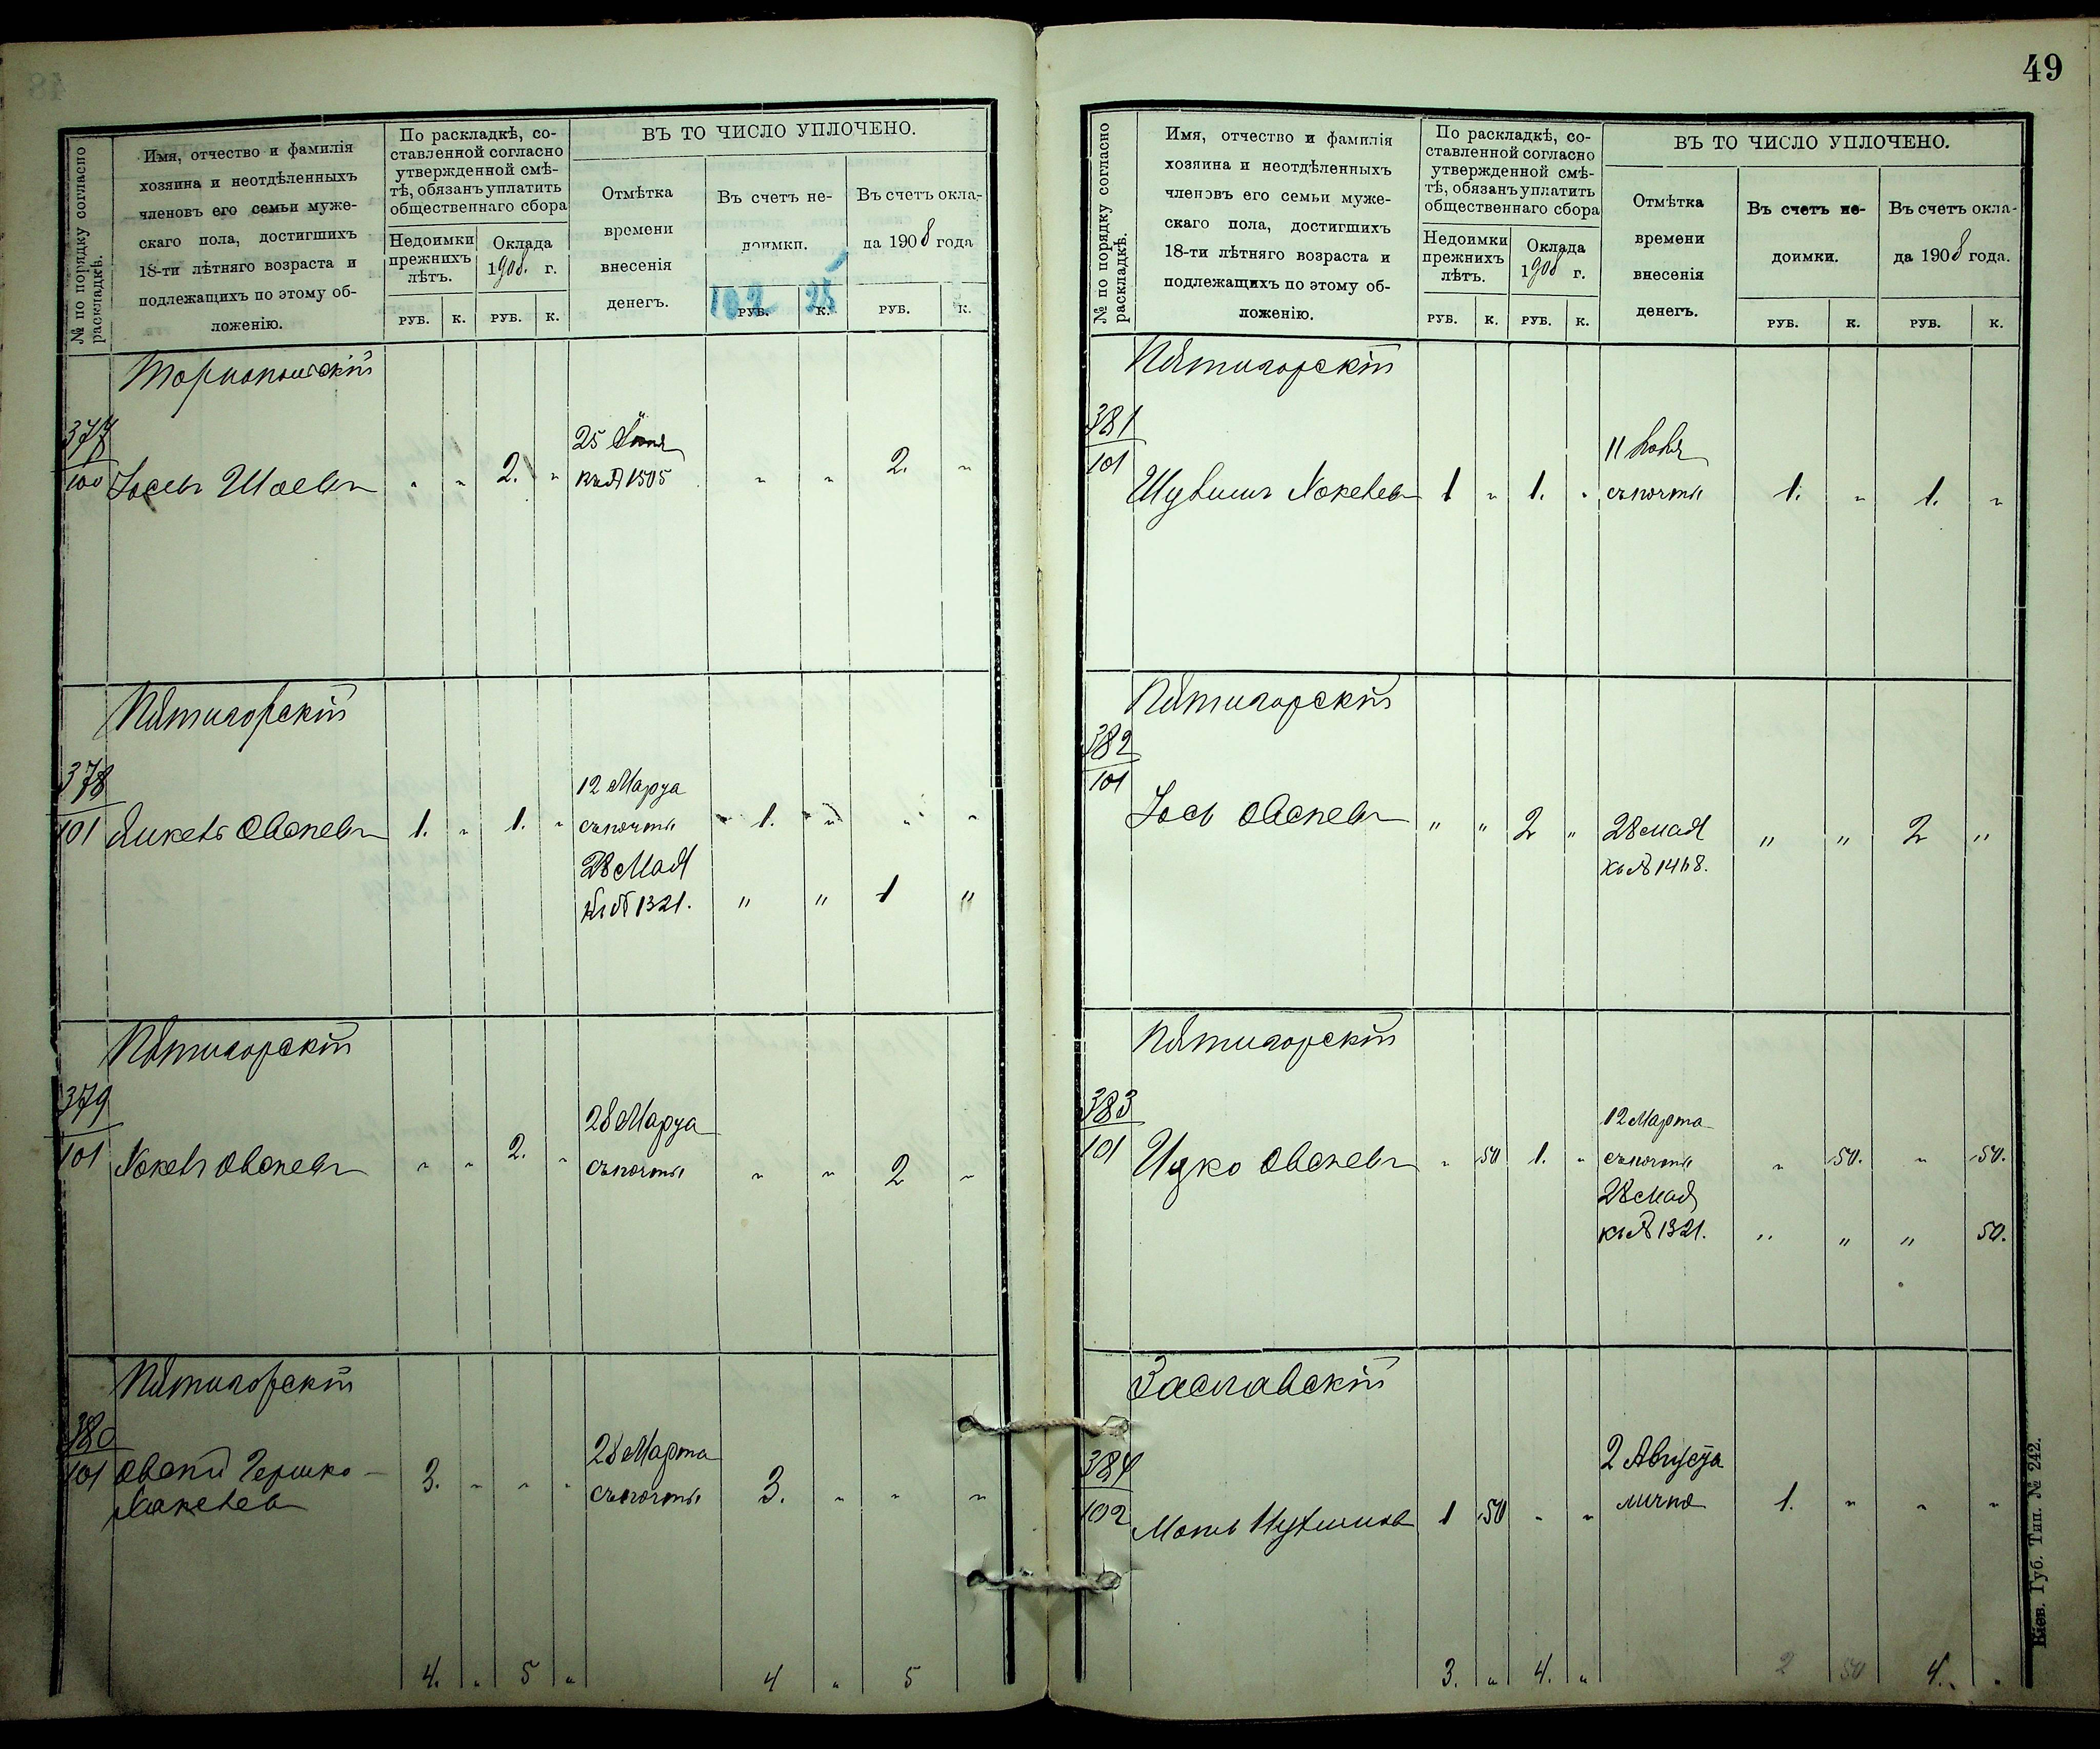 49
№ по порядку согласно
раскладкѣ.
Имя, отчество и фамилія
хозяина и неотдѣленныхъ
членовъ его семьи муже-
скаго пола, достигшихъ
18-ти лѣтняго возраста и
подлежащихъ по этому об-
ложенію.
По раскладкѣ, со-
ставленной согласно
утвержденной смѣ-
тѣ, обязанъ уплатить
общественнаго сбора
Недоимки
прежнихъ
лѣтъ.
Оклада
1908. г.
РУБ. К. РУБ. К.
ВЪ ТО ЧИСЛО УПЛОЧЕНО.
Отмѣтка
времени
внесенія
денегъ.
Въ счетъ не-
доимки.
Въ счетъ окла-
да 1908 года
102 25
РУБ. К. РУБ. К.
377
100
Іосевъ Шоевъ " " 2. " 25 Іюня
къ № 1505 " " 2. "
Пятигорскій
378
101
Янкевъ Овсневъ 1. " 1. " 12 Марта
съ почты " 1. " " " "
28 Мая
къ № 1321. " " 1 "
Пятигорскій
379
101
Хокевъ Овсневъ " " 2. " 28 Марта
съ почты " " 2 "
Пятигорскій
380
101
Овсей Гершко-
Хакевев 3. " " " 28 Марта
съ почты 3. " " "
4. " 5 " 4 " 5
№ по порядку согласно
раскладкѣ.
Имя, отчество и фамилія
хозяина и неотдѣленныхъ
членовъ его семьи муже-
скаго пола, достигшихъ
18-ти лѣтняго возраста и
подлежащихъ по этому об-
ложенію.
По раскладкѣ, со-
ставленной согласно
утвержденной смѣ-
тѣ, обязанъ уплатить
общественнаго сбора
Недоимки
прежнихъ
лѣтъ.
Оклада
1908 г.
РУБ. К. РУБ. К.
ВЪ ТО ЧИСЛО УПЛОЧЕНО.
Отмѣтка
времени
внесенія
денегъ.
Въ счетъ не-
доимки.
Въ счетъ окла-
да 1908 года.
РУБ. К. РУБ. К.
Пятигорскій
381
101
Хокевев 1 " 1. " 11
съ почты 1. " 1. "
Пятигорскій
382
101
Іось Овсневъ " " 2 " 28 мая
къ № 1468. " " 2 "
Пятигорскій
383
101
Ицко Овсневъ " 50 1. " 12 Марта
съ почты " 50. " 50.
28 мая
къ № 1321. " " " 50.
Заславскій
384
102
1 50 " " 2 Августа
лично 1. " " "
3. " 4. " 2 50 4. "
Кіев. Губ. Тип. № 242.